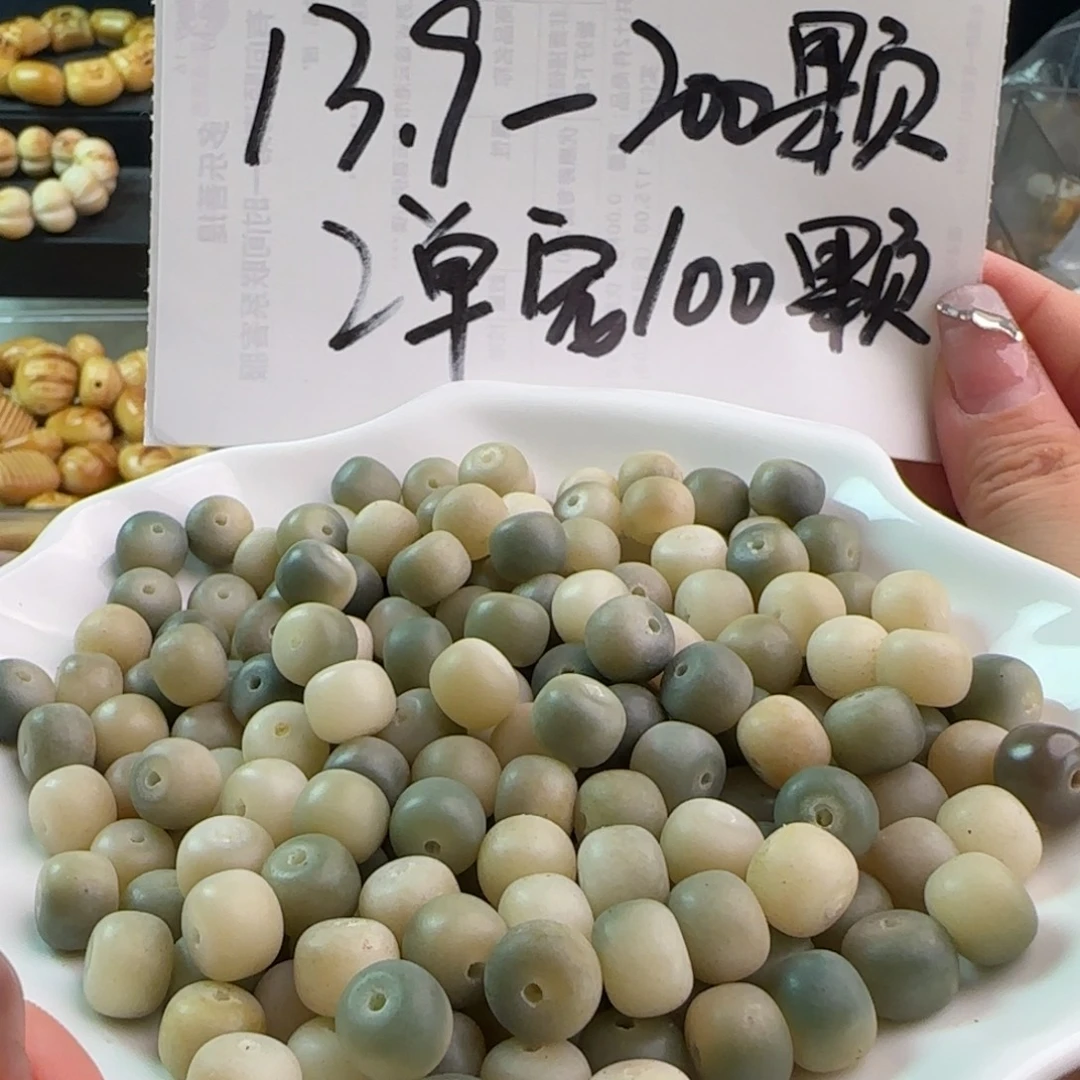 13.9-200颗
2单宛100颗